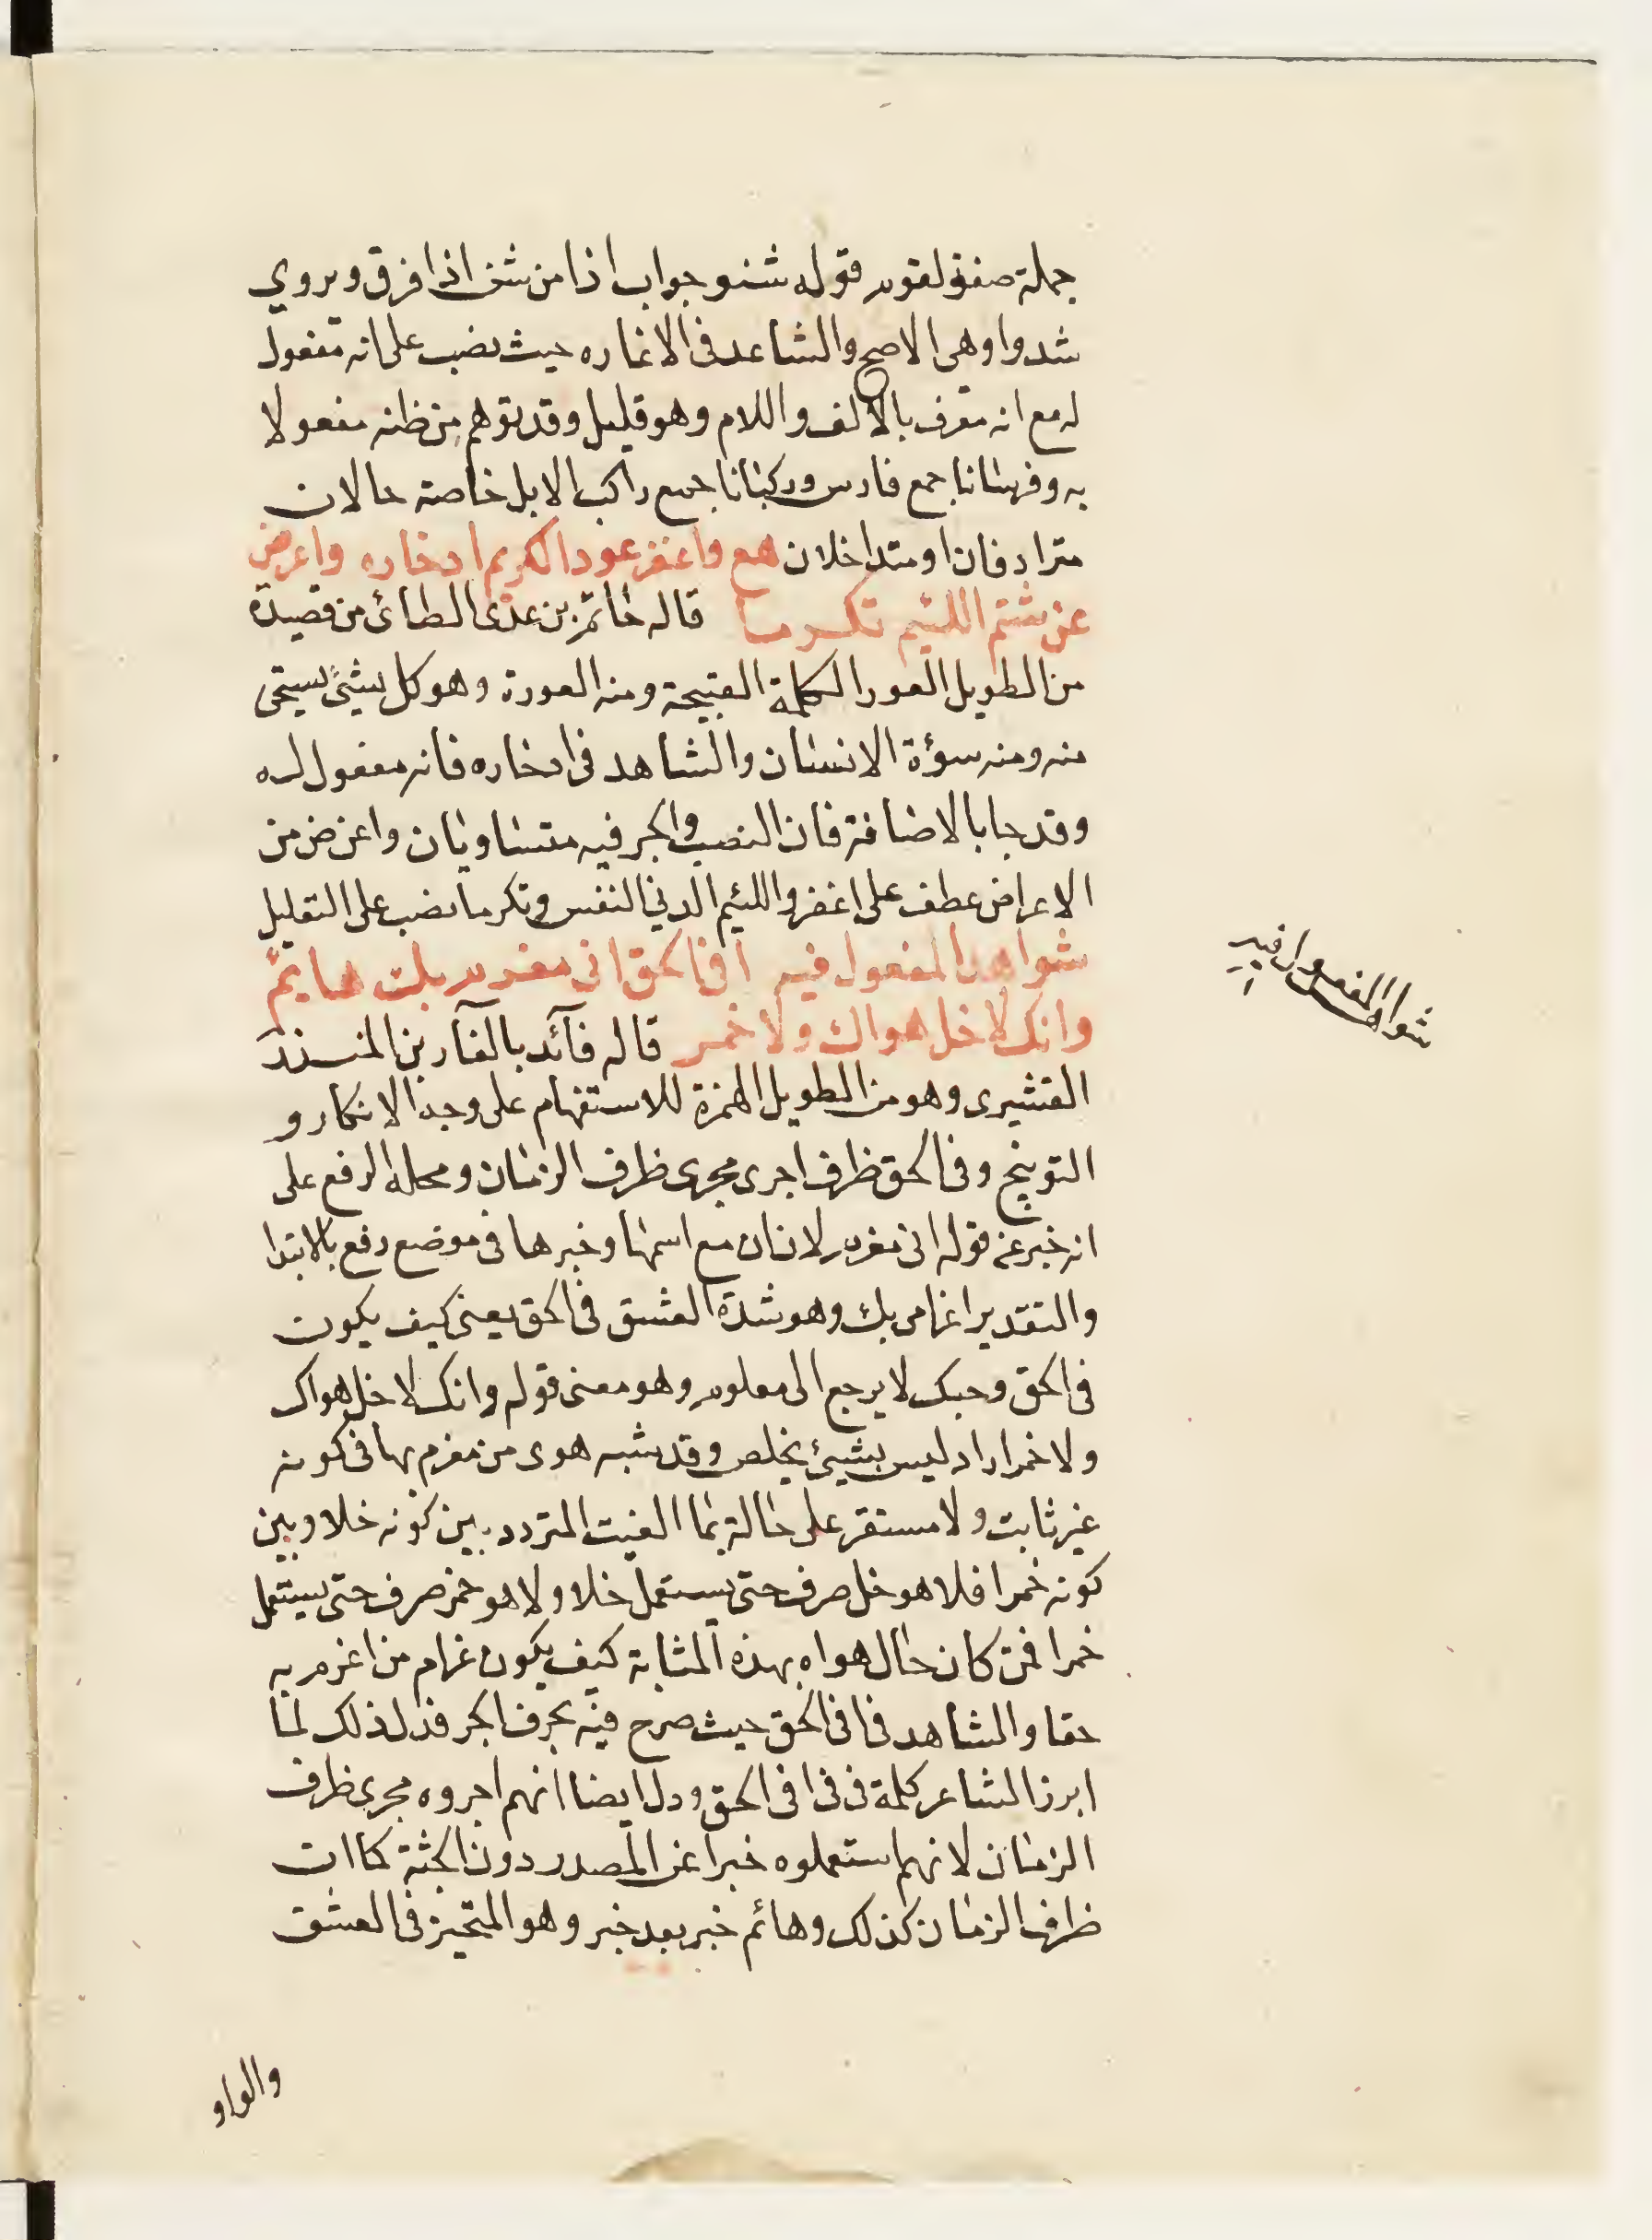 جملة صفة لقوم قوله شنو جواب اذا من شن اذا فرق ويروي
شدوا وهى الاصح والشاهد فى الاغاره حيث نصب على انه مفعول
له مع انه معرف بالالف واللام وهو قليل وقد توهم من ظنه مفعولا
به وفرسانا جمع فارس وركبانا جمع راكب الابل خاصة حالان
مترادفان او متداخلان هع واغفر عوراء الكريم ادخاره واعرض
عن شتم اللئيم تكرما قاله حاتم بن عدى الطائ من قصيدة
من الطويل العورا الكلمة القبيحة ومنه العورة وهو كل شيئ يستحى
منه ومنه سوؤة الانسان والشاهد فى ادخاره فانه مفعول له
وقد جا بالاضافة فان النصب والجر فيه متساويان واعرض من
الاعراض عطف على اغفر واللئيم الدني النفس وتكرما نصب على التعليل
شواهد المفعول فيه افى الحق انى مغرم بك هائم
وانك لا خل هواك ولا خمر قاله فآئد بالفآ بن المنذر
القشيرى وهو من الطويل الهمزة للاستفهام على وجه الانكار و
التوبيخ وفى الحق ظرف اجرى مجرى ظرف الزمان ومحله الرفع على
انه خبر عن قوله انى مغرم لان ان مع اسمها وخبرها فى موضع رفع بالابتدا
والتقدير اغرامى بك وهو شدة العشق فى الحق يعنى كيف يكون
فى الحق وحبك لا يرجع الى معلوم وهو معنى قوله وانك لا خل هواك
ولا خمر اراد ليس بشيئ يخلص وقد شبه هوى من مغرم بها فى كونه
غير ثابت ولا مستقر على حالة بما العنب المتردد بين كونه خلا وبين
كونه خمرا فلا هو خل صرف حتى يستعمل خلا ولا هو خمر صرف حتى يستعمل
خمرا فمن كان حال هواه بهذه المثابة كيف يكون غرام من اغرم به
حقا والشاهد فى افى الحق حيث صرح فيه بحرف الجر فدل لذلك لما
ابرز الشاعر كلمة فى فى افى الحق ودل ايضا انهم اجروه مجرى ظرف
الزمان لانهم استعملوه خبرا عن المصدر دون الجثة كما ان
ظرف الزمان كذلك وهائم خبر بعد خبر وهو المتحير فى العشق
والواو
شواهد المفعول فيه